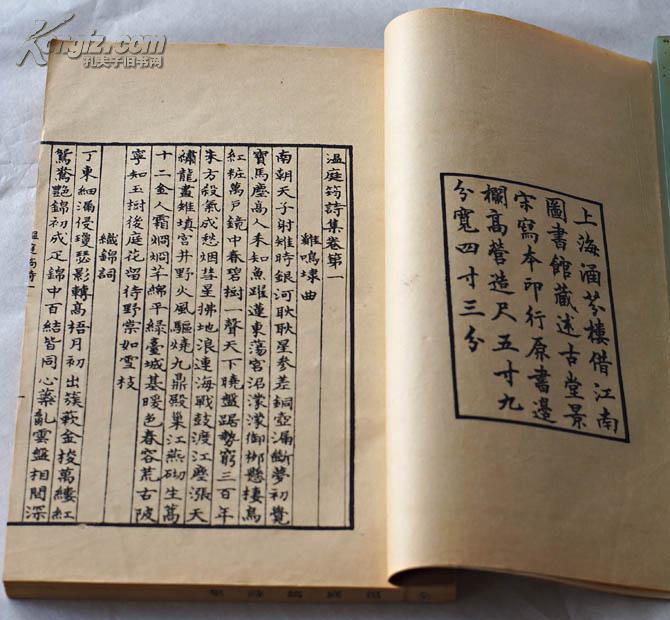 Kongfz.com
孔夫子旧书网
上海涵芬樓借江南
圖書館藏述古堂景
宋寫本印行原書邊
欄高營造尺五寸九
分寬四寸三分
温庭筠詩集卷第一
雞鳴埭曲
南朝天子射雉時銀河耿耿星參差銅壺漏斷夢初覺
寶馬塵高人未知魚躍蓮東蕩宮沼濛濛御柳懸棲鳥
紅粧萬戶鏡中春碧樹一聲天下曉盤踞勢窮三百年
朱方殺氣成愁烟彗星拂地浪連海戰鼓渡江塵漲天
繡龍畫雉填宮井野火風驅燒九鼎殿巢江燕砌生蒿
十二金人霜炯炯芊綿平綠臺城基暖色春容荒古陂
寧知玉樹後庭花留待野棠如雪枝
織錦詞
丁東細漏侵瓊瑟影轉高梧月初出簇蔌金梭萬縷紅
鴛鴦艷錦初成疋錦中百結皆同心蘂亂雲盤相間深